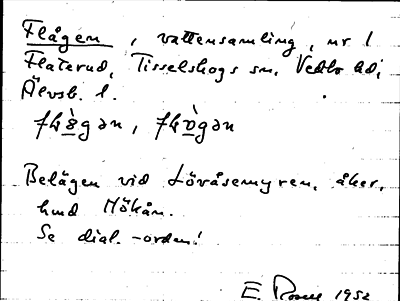 Flågen, vattensamling, nr 1
Flaterud, Tisselskogs sn, Vedbo hd,
Älvsb. l.
Belägen vid Lövåsemyren, åker,
hmd Mökån.
Se dial.-orden!
E. Rosell 1952